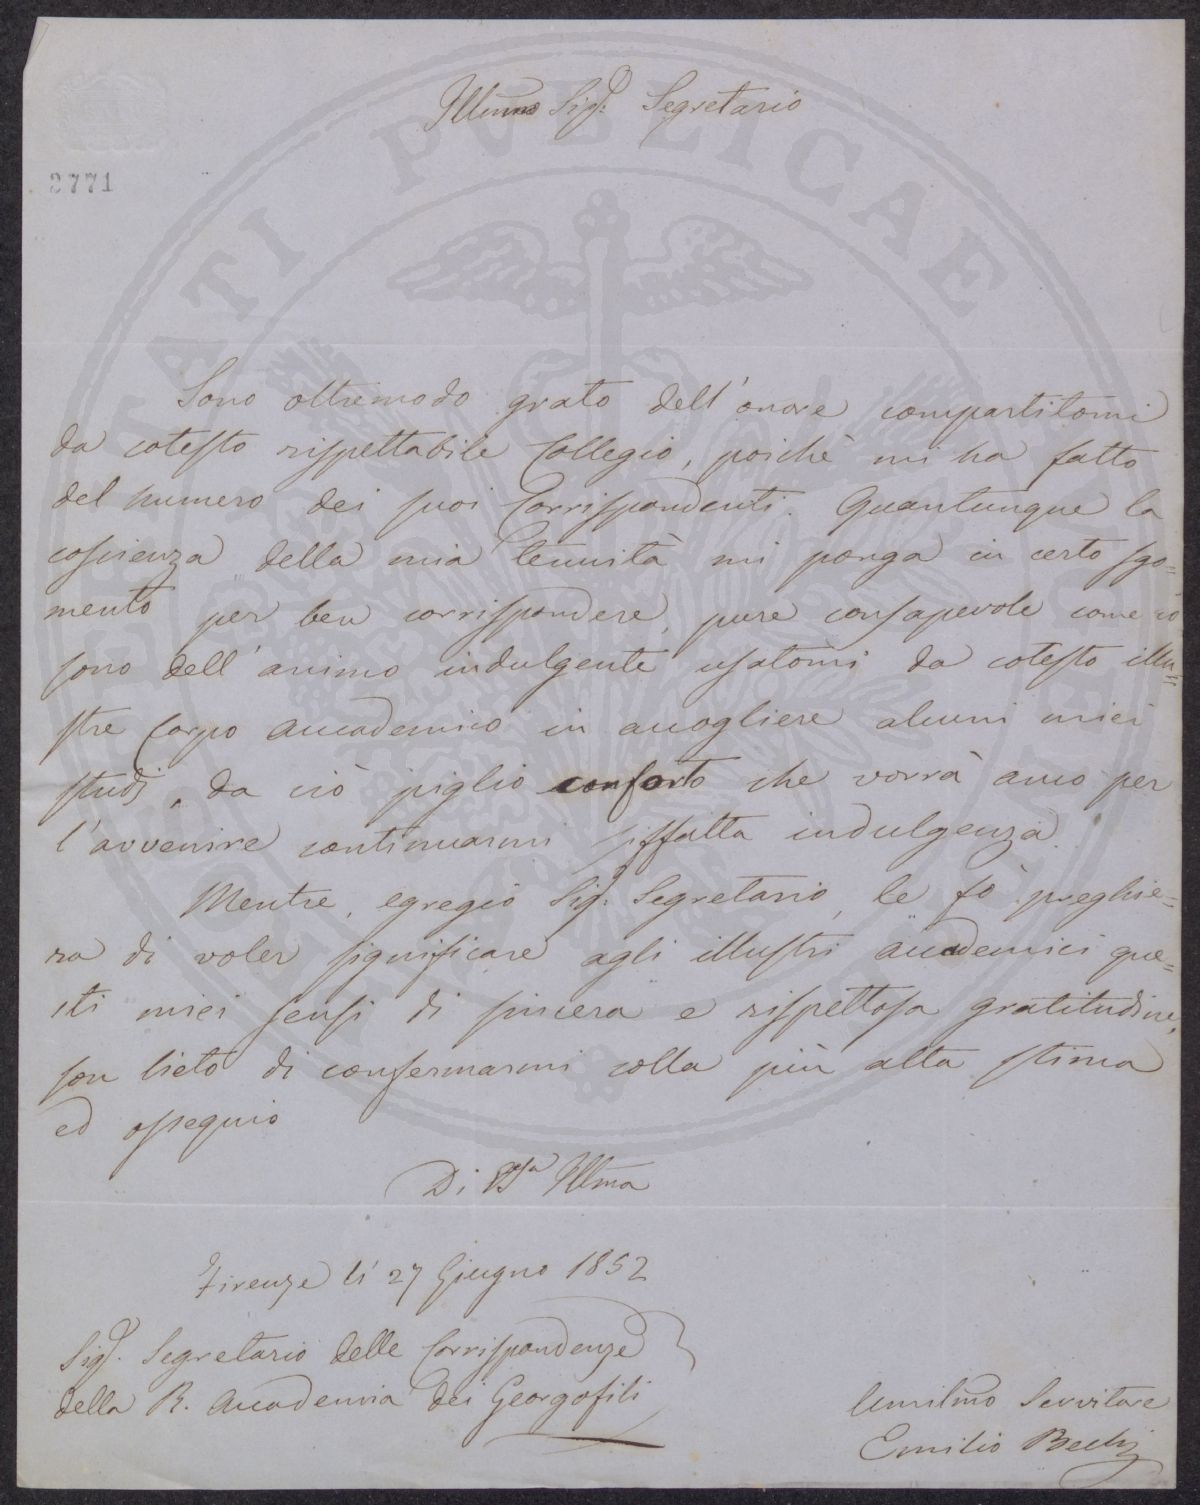 Illmo Sigr. Segretario
2771
Sono oltremodo grato dell'onore compartitomi
da cotesto rispettabile Collegio, poichè mi ha fatto
del numero dei suoi Corrispondenti. Quantunque la
coscienza della mia tenuità mi ponga in certo sgo=
mento per ben corrispondere, pure consapevole come io
sono dell'animo indulgente usatomi da cotesto illu=
stre Corpo accademico in accogliere alcuni miei
studj, da ciò piglio conforto che vorrà anco per
l'avvenire continuarmi siffatta indulgenza.
Mentre, egregio Sigr. Segretario, le fò preghie=
ra di voler significare agli illustri accademici que=
sti miei sensi di sincera e rispettosa gratitudine,
son lieto di confermarmi colla più alta stima
ed ossequio
Di Illma
Firenze li 27 Giugno 1852
Sigr. Segretario delle Corrispondenze
della R. Accademia dei Georgofili
Umilmo Servitore
Emilio Bechi
PVBLICAE